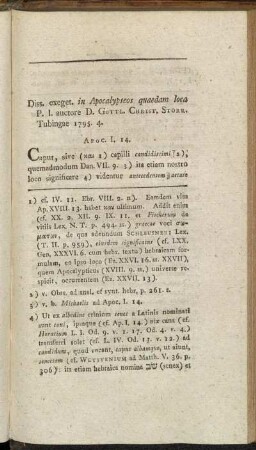 Diss. exeget. in Apocalypseos quaedam loca
P. I. auctore D. GOTTL. CHRIST. STORR.
Tubingae 1795. 4.
APOC. I, 14.
Caput, sive (και 1) capilli candidissimi [2];
quemadmodum Dan. VII. 9. 3) ita etiam nostro
loco significare 4) videntur antecedentem aetate
1) cf. IV. 11. Ebr. VIII. 2. 2). Eamdem vim
Ap. XVIII. 13. habet και ultimum. Addit enim
(cf. XX. 2. XII. 9. IX. 11, et Fischerum de
vitiis Lex. N. T. p. 494.) graecae voci σω-
ματων, de qua adeundum SCHLEUSNERI Lex.
(T. II. p. 959), eiusdem significatus (cf. LXX.
Gen. XXXVI. 6. cum hebr. textu) hebraicam for-
mulam, ex ipso loco (Ez. XXVI. 16. ut XXVII,
quem Apocalypticus (XVIII. 9.) universe re-
spicit, occurrentem (Ez. XXVII. 13).
2) v. Obss. ad anal. et synt. hebr. p. 261. 2.
3) v. h. Michaelis ad Apoc. I. 14.
4) Ut ex albedine crinium senes a Latinis nominati
sunt cani, ipsaque (cf. Ap. I. 14.)
Horatium L. I. Od. 9. v. 17. Od. 4. v. 4)
transferri solet (cf. L. IV. Od. 13. v. 12) ad
candidum, quod vocant, caput albumque, ut aiunt,
(cf. WETSTENIUM ad Matth. V. 36. p.
306): ita etiam hebraica nomina שב (senex) et